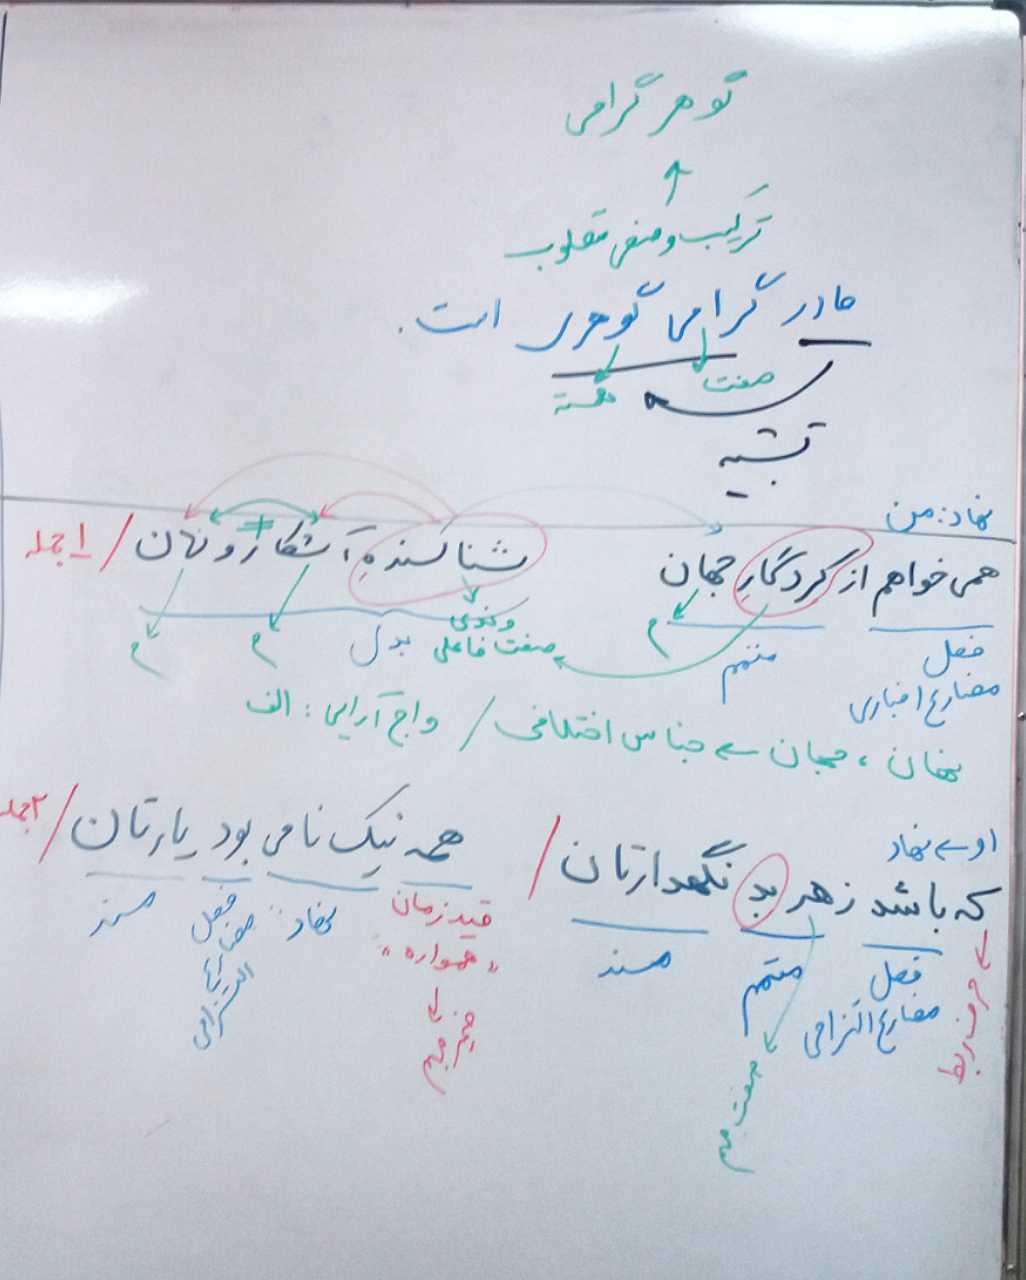 گوهر گرامی
ترکیب وصفی مقلوب
مادر گرامی گوهری است.
صفت
هسته
تشبیه
نهاد: من
همی خواهم از کردگارِ جهان
شناسندهِ آشکار و نهان / ۱ جمله
فعل
مضارع اخباری
متمم
م
وندی
صفت فاعلی
بدل
م
م
نهان ، جهان ← جناس اختلافی / واج آرایی : الف
او ← نهاد
که باشد ز هر بد نگهدارتان /
همه نیک نامی بود یارتان / ۲ جمله
حرف ربط
فعل
مضارع التزامی
متمم
صفت مبهم
مسند
قید زمان
"همواره"
ضمیر مبهم
نهاد
فعل
مضارع
التزامی
مسند